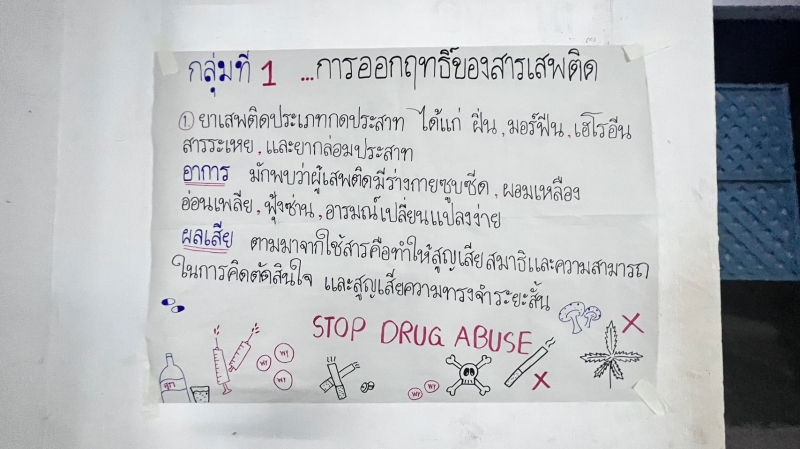 กลุ่มที่ 1 ...การออกฤทธิ์ของสารเสพติด
① ยาเสพติดประเภทกดประสาท ได้แก่ ฝิ่น, มอร์ฟีน, เฮโรอีน
สารระเหย, และยากล่อมประสาท
อาการ มักพบว่าผู้เสพติดมีร่างกายซูบซีด, ผอมเหลือง
อ่อนเพลีย, ฟุ้งซ่าน, อารมณ์เปลี่ยนแปลงง่าย
ผลเสีย ตามมาจากใช้สารคือทำให้สูญเสียสมาธิและความสามารถ
ในการคิดตัดสินใจ และสูญเสียความทรงจำระยะสั้น
STOP DRUG ABUSE
สุรา
WY
WY
WY
WY
WY